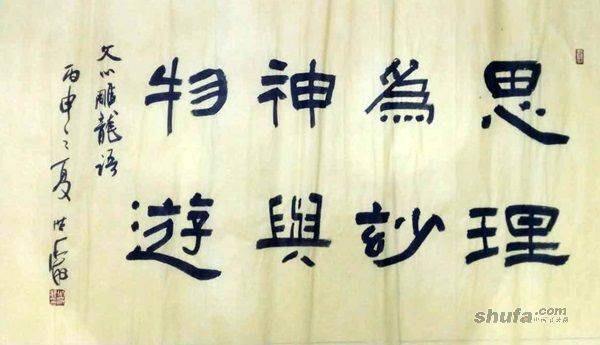 思理
爲玅
神與
物遊
文心雕龍語
丙申之夏
shufa.com